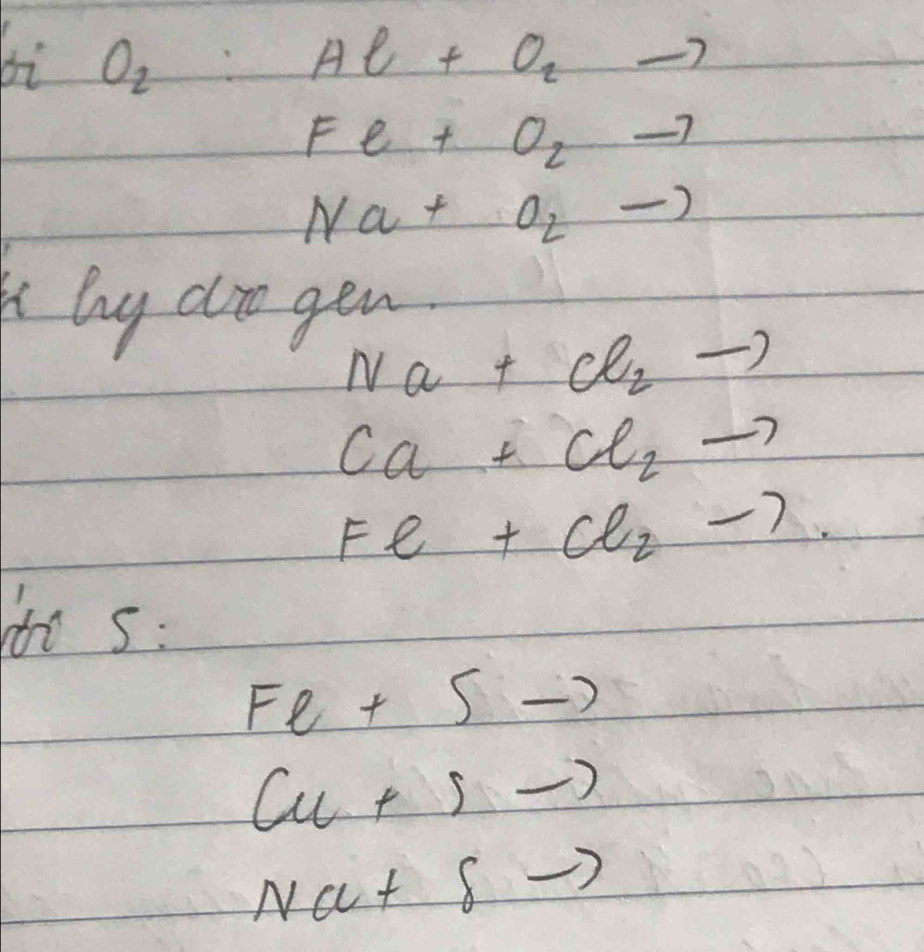 O₂ : Al + O₂ →
Fe + O₂ →
Na + O₂ →
hydrogen.
Na + Cl₂ →
Ca + Cl₂ →
Fe + Cl₂ →.
S:
Fe + S →
Cu + S →
Na + S →